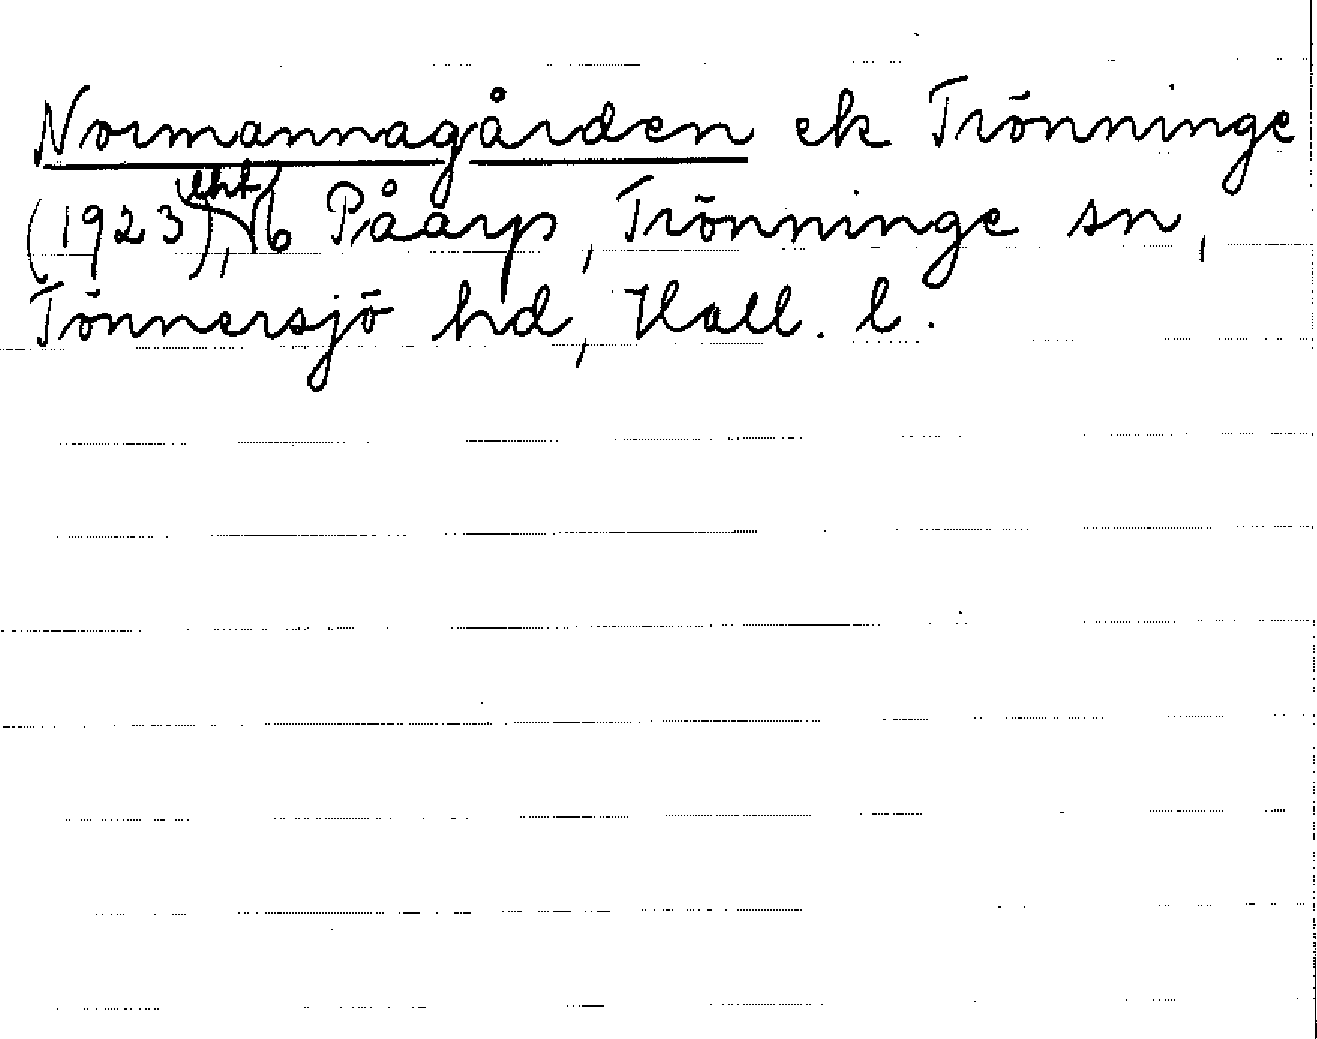 Normannagården ek Trönninge
(1923), lht 6 Påarp, Trönninge sn,
Tönnersjö hd, Hall. l.